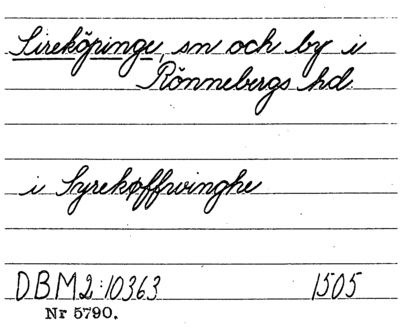 Sireköpinge, sn och by i
Rönnebergs hd.
i Syrekøffwinghe
DBM2:10363 1505
Nr 5790.